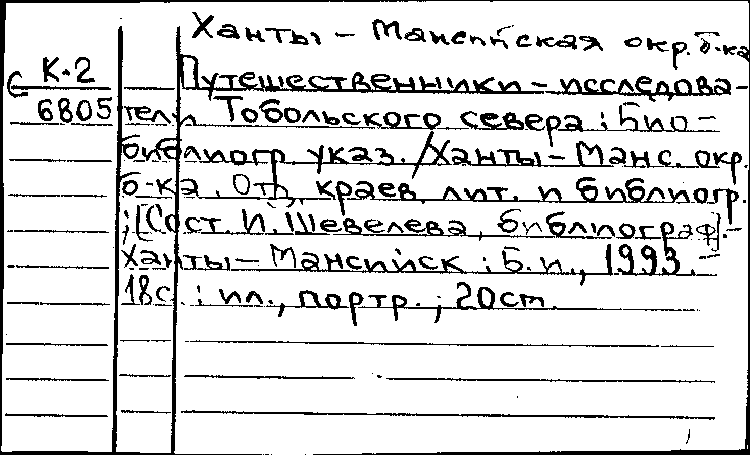 Ханты-Мансийская окр. б-ка
К-2
Путешественники-исследова-
С 6805
тели Тобольского севера : Био-
библиогр. указ. / Ханты-Манс. окр.
б-ка. Отд. краев. лит. и библиогр.
; [Сост. И. Шевелева, библиограф].-
Ханты-Мансийск : Б.и., 1993.-
18с. : ил., портр. ; 20см.